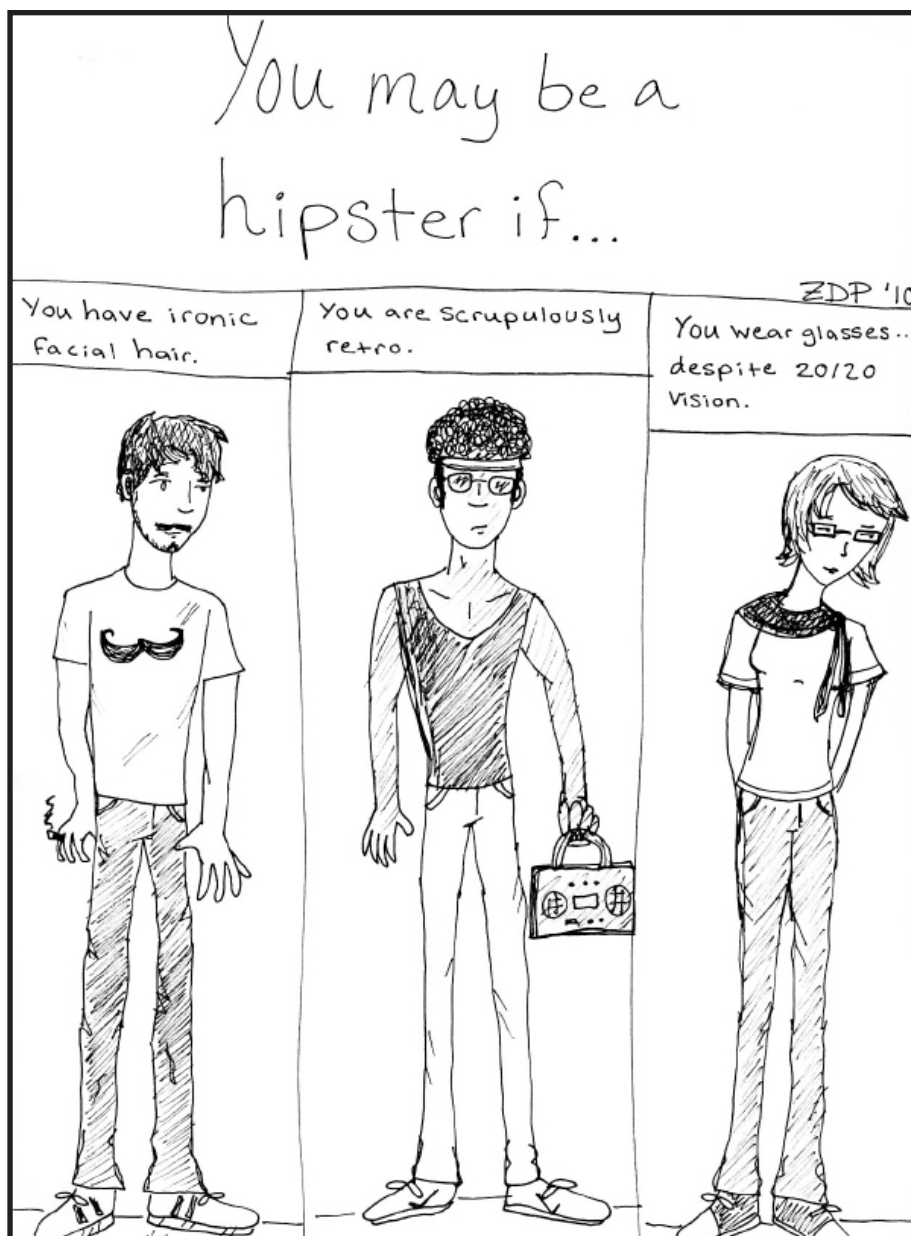 You may be a
hipster if...
ZDP '10
You have ironic
facial hair.
You are scrupulously
retro.
You wear glasses..
despite 20/20
vision.